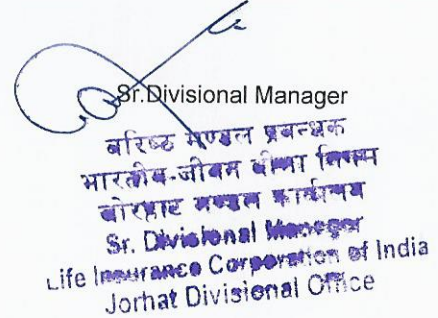 Sr.Divisional Manager
बरिष्ठ मण्डल प्रबन्धक
भारतीय जीवन बीमा निगम
जोरहाट मण्डल कार्यालय
Sr. Divisional Manager
Life Insurance Corporation of India
Jorhat Divisional Office